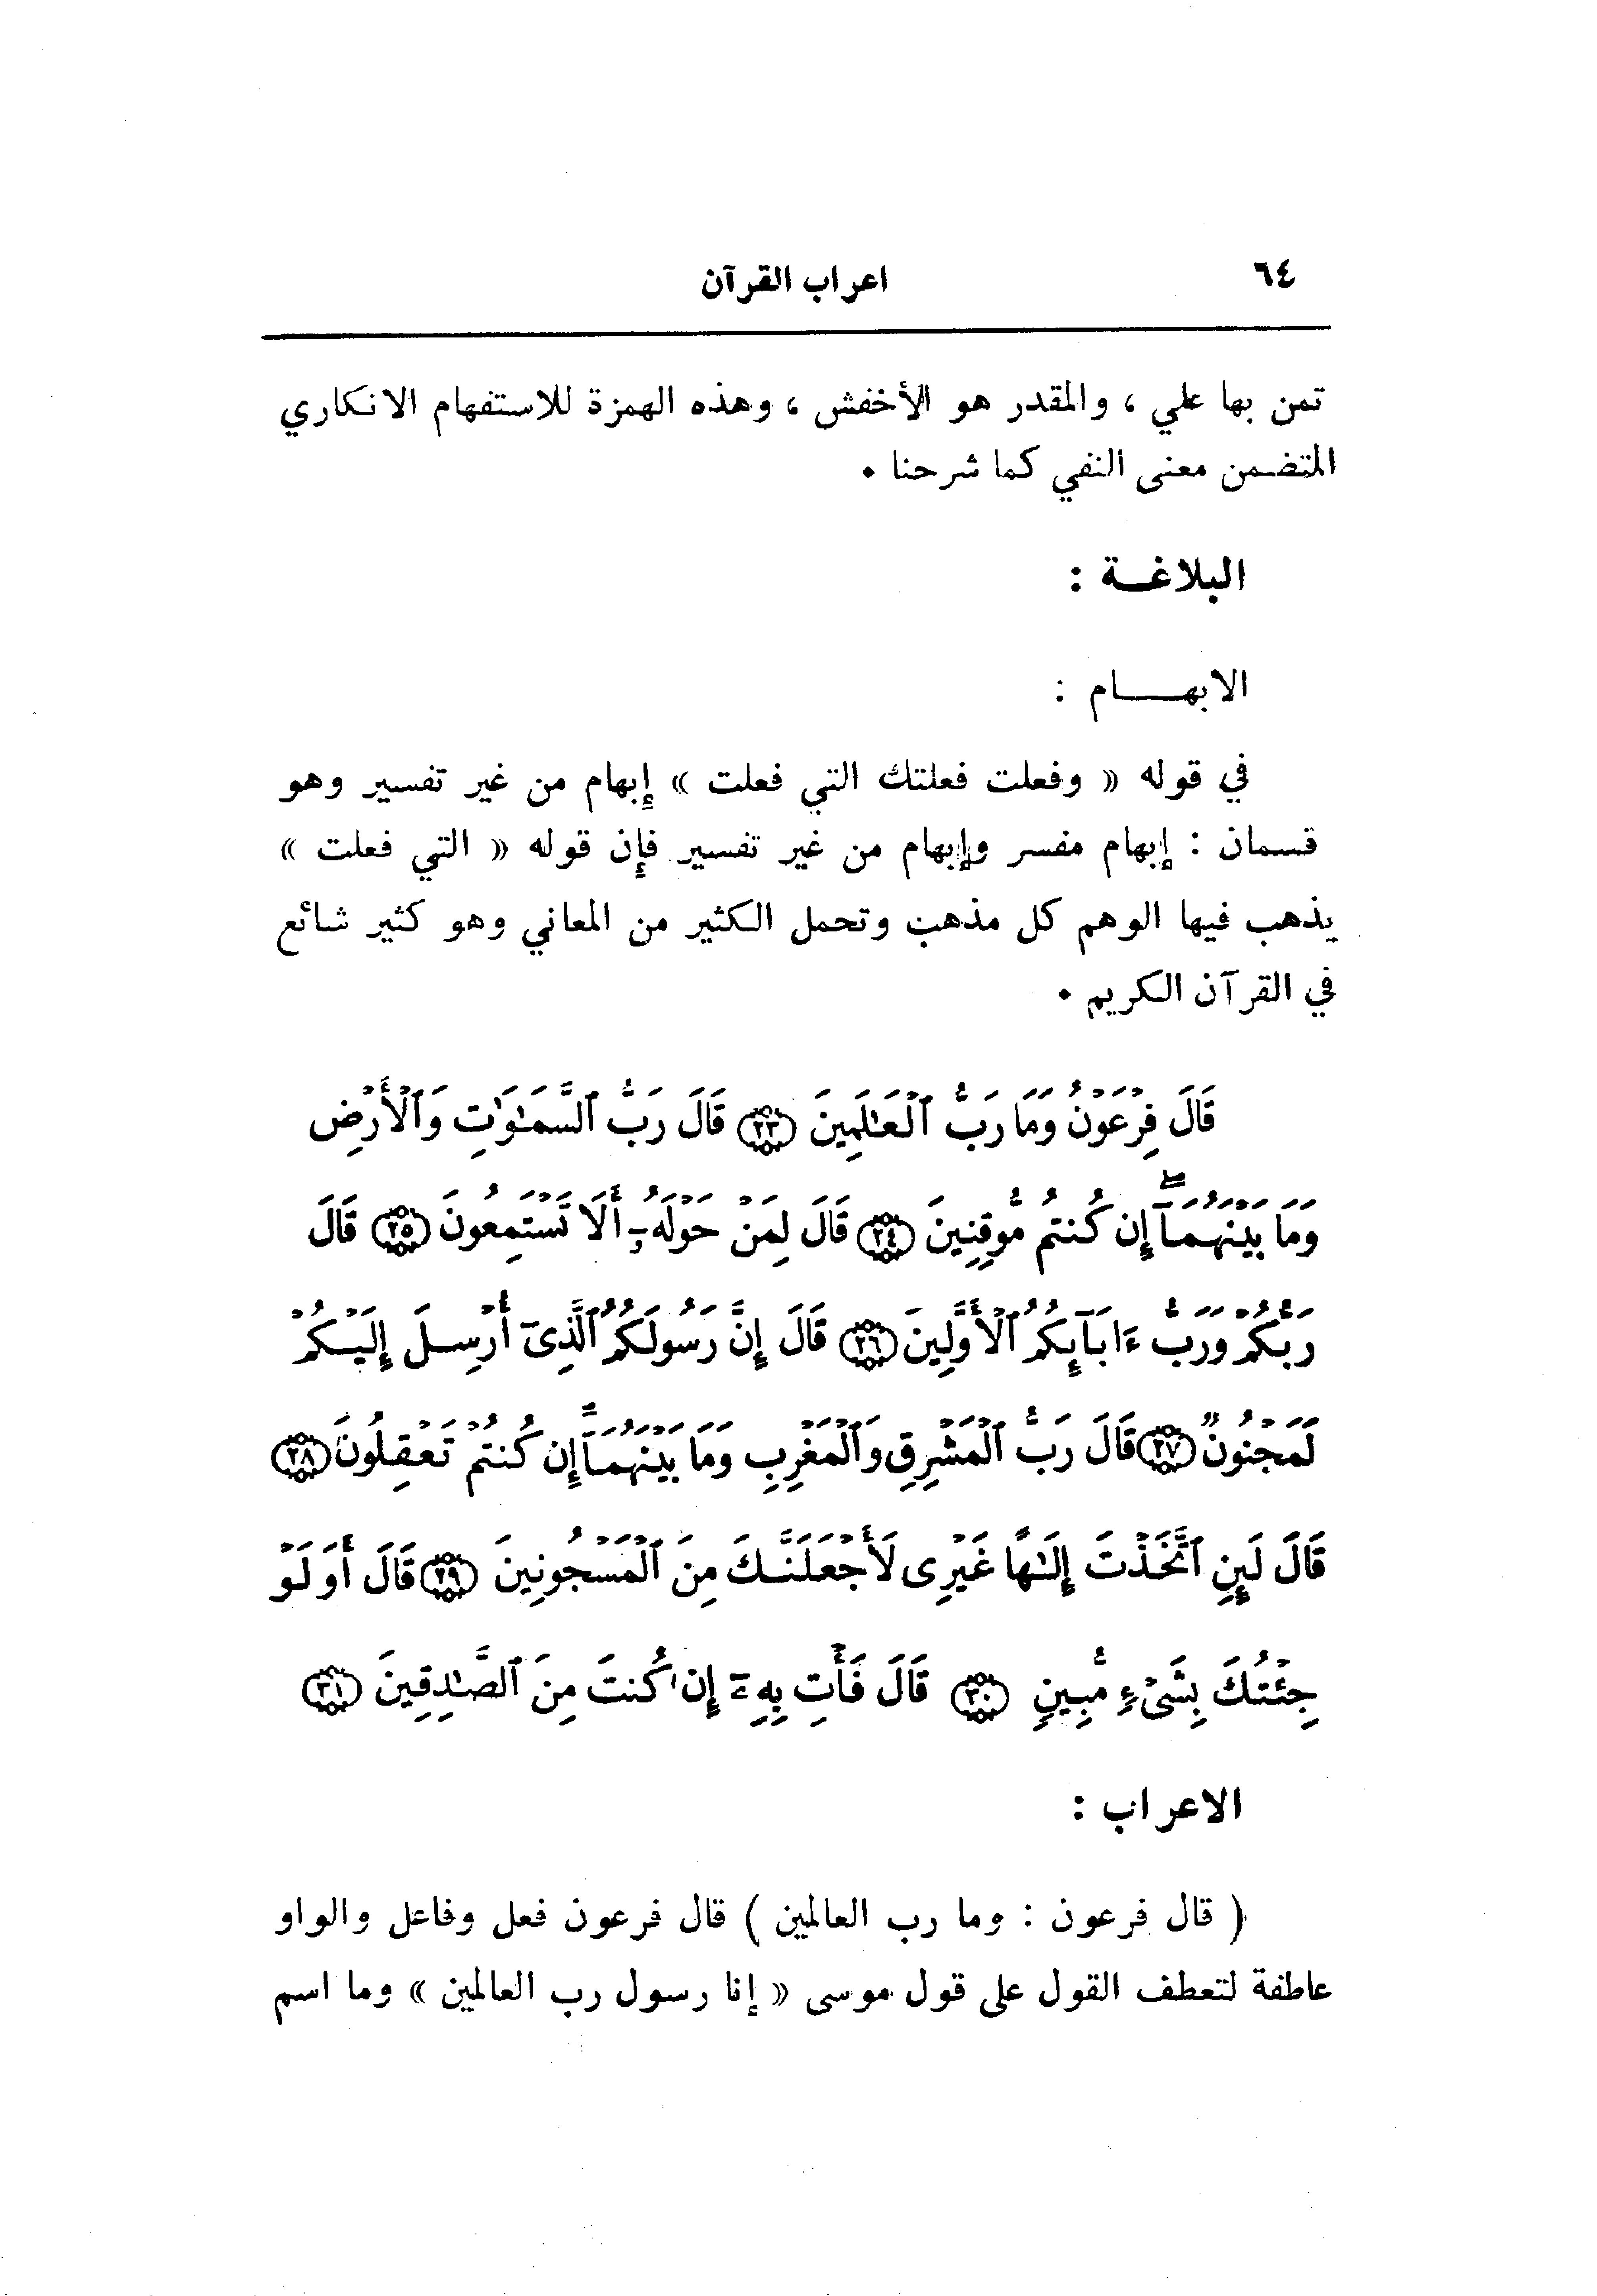 ٦٤ اعراب القرآن
تمن بها علي ، والمقدر هو الأخفش ، وهذه الهمزة للاستفهام الانكاري
المتضمن معنى النفي كما شرحنا •
البلاغـــة :
الابهـــــام :
في قوله « وفعلت فعلتك التي فعلت » إبهام من غير تفسير وهو
قسمان : إبهام مفسر وإبهام من غير تفسير فإن قوله « التي فعلت »
يذهب فيها الوهم كل مذهب وتحمل الكثير من المعاني وهو كثير شائع
في القرآن الكريم •
قَالَ فِرْعَوْنُ وَمَا رَبُّ ٱلْعَـٰلَمِينَ ﴿٢٣﴾ قَالَ رَبُّ ٱلسَّمَـٰوَٰتِ وَٱلْأَرْضِ
وَمَا بَيْنَهُمَآ ۖ إِن كُنتُم مُّوقِنِينَ ﴿٢٤﴾ قَالَ لِمَنْ حَوْلَهُۥٓ أَلَا تَسْتَمِعُونَ ﴿٢٥﴾ قَالَ
رَبُّكُمْ وَرَبُّ ءَابَآئِكُمُ ٱلْأَوَّلِينَ ﴿٢٦﴾ قَالَ إِنَّ رَسُولَكُمُ ٱلَّذِىٓ أُرْسِلَ إِلَيْكُمْ
لَمَجْنُونٌ ﴿٢٧﴾ قَالَ رَبُّ ٱلْمَشْرِقِ وَٱلْمَغْرِبِ وَمَا بَيْنَهُمَآ ۖ إِن كُنتُمْ تَعْقِلُونَ ﴿٢٨﴾
قَالَ لَئِنِ ٱتَّخَذْتَ إِلَـٰهًا غَيْرِى لَأَجْعَلَنَّكَ مِنَ ٱلْمَسْجُونِينَ ﴿٢٩﴾ قَالَ أَوَلَوْ
جِئْتُكَ بِشَىْءٍ مُّبِينٍ ﴿٣٠﴾ قَالَ فَأْتِ بِهِۦٓ إِن كُنتَ مِنَ ٱلصَّـٰدِقِينَ ﴿٣١﴾
الاعراب :
( قال فرعون : وما رب العالمين ) قال فرعون فعل وفاعل والواو
عاطفة لتعطف القول على قول موسى « إنا رسول رب العالمين » وما اسم